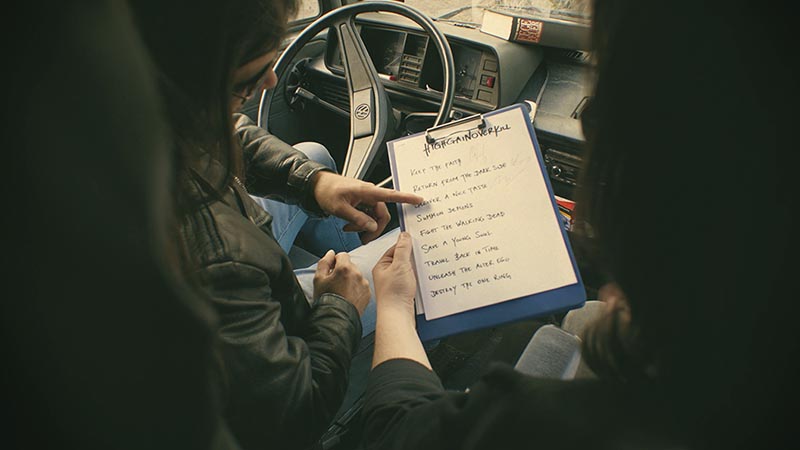 #HIGHGAINOVERKILL
KEEP THE FAITH
RETURN FROM THE DARK SIDE
A NICE TASTE
SUMMON DEMONS
FIGHT THE WALKING DEAD
SAVE A YOUNG SOUL
TRAVEL BACK IN TIME
UNLEASH THE ALTER EGO
DESTROY THE ONE RING